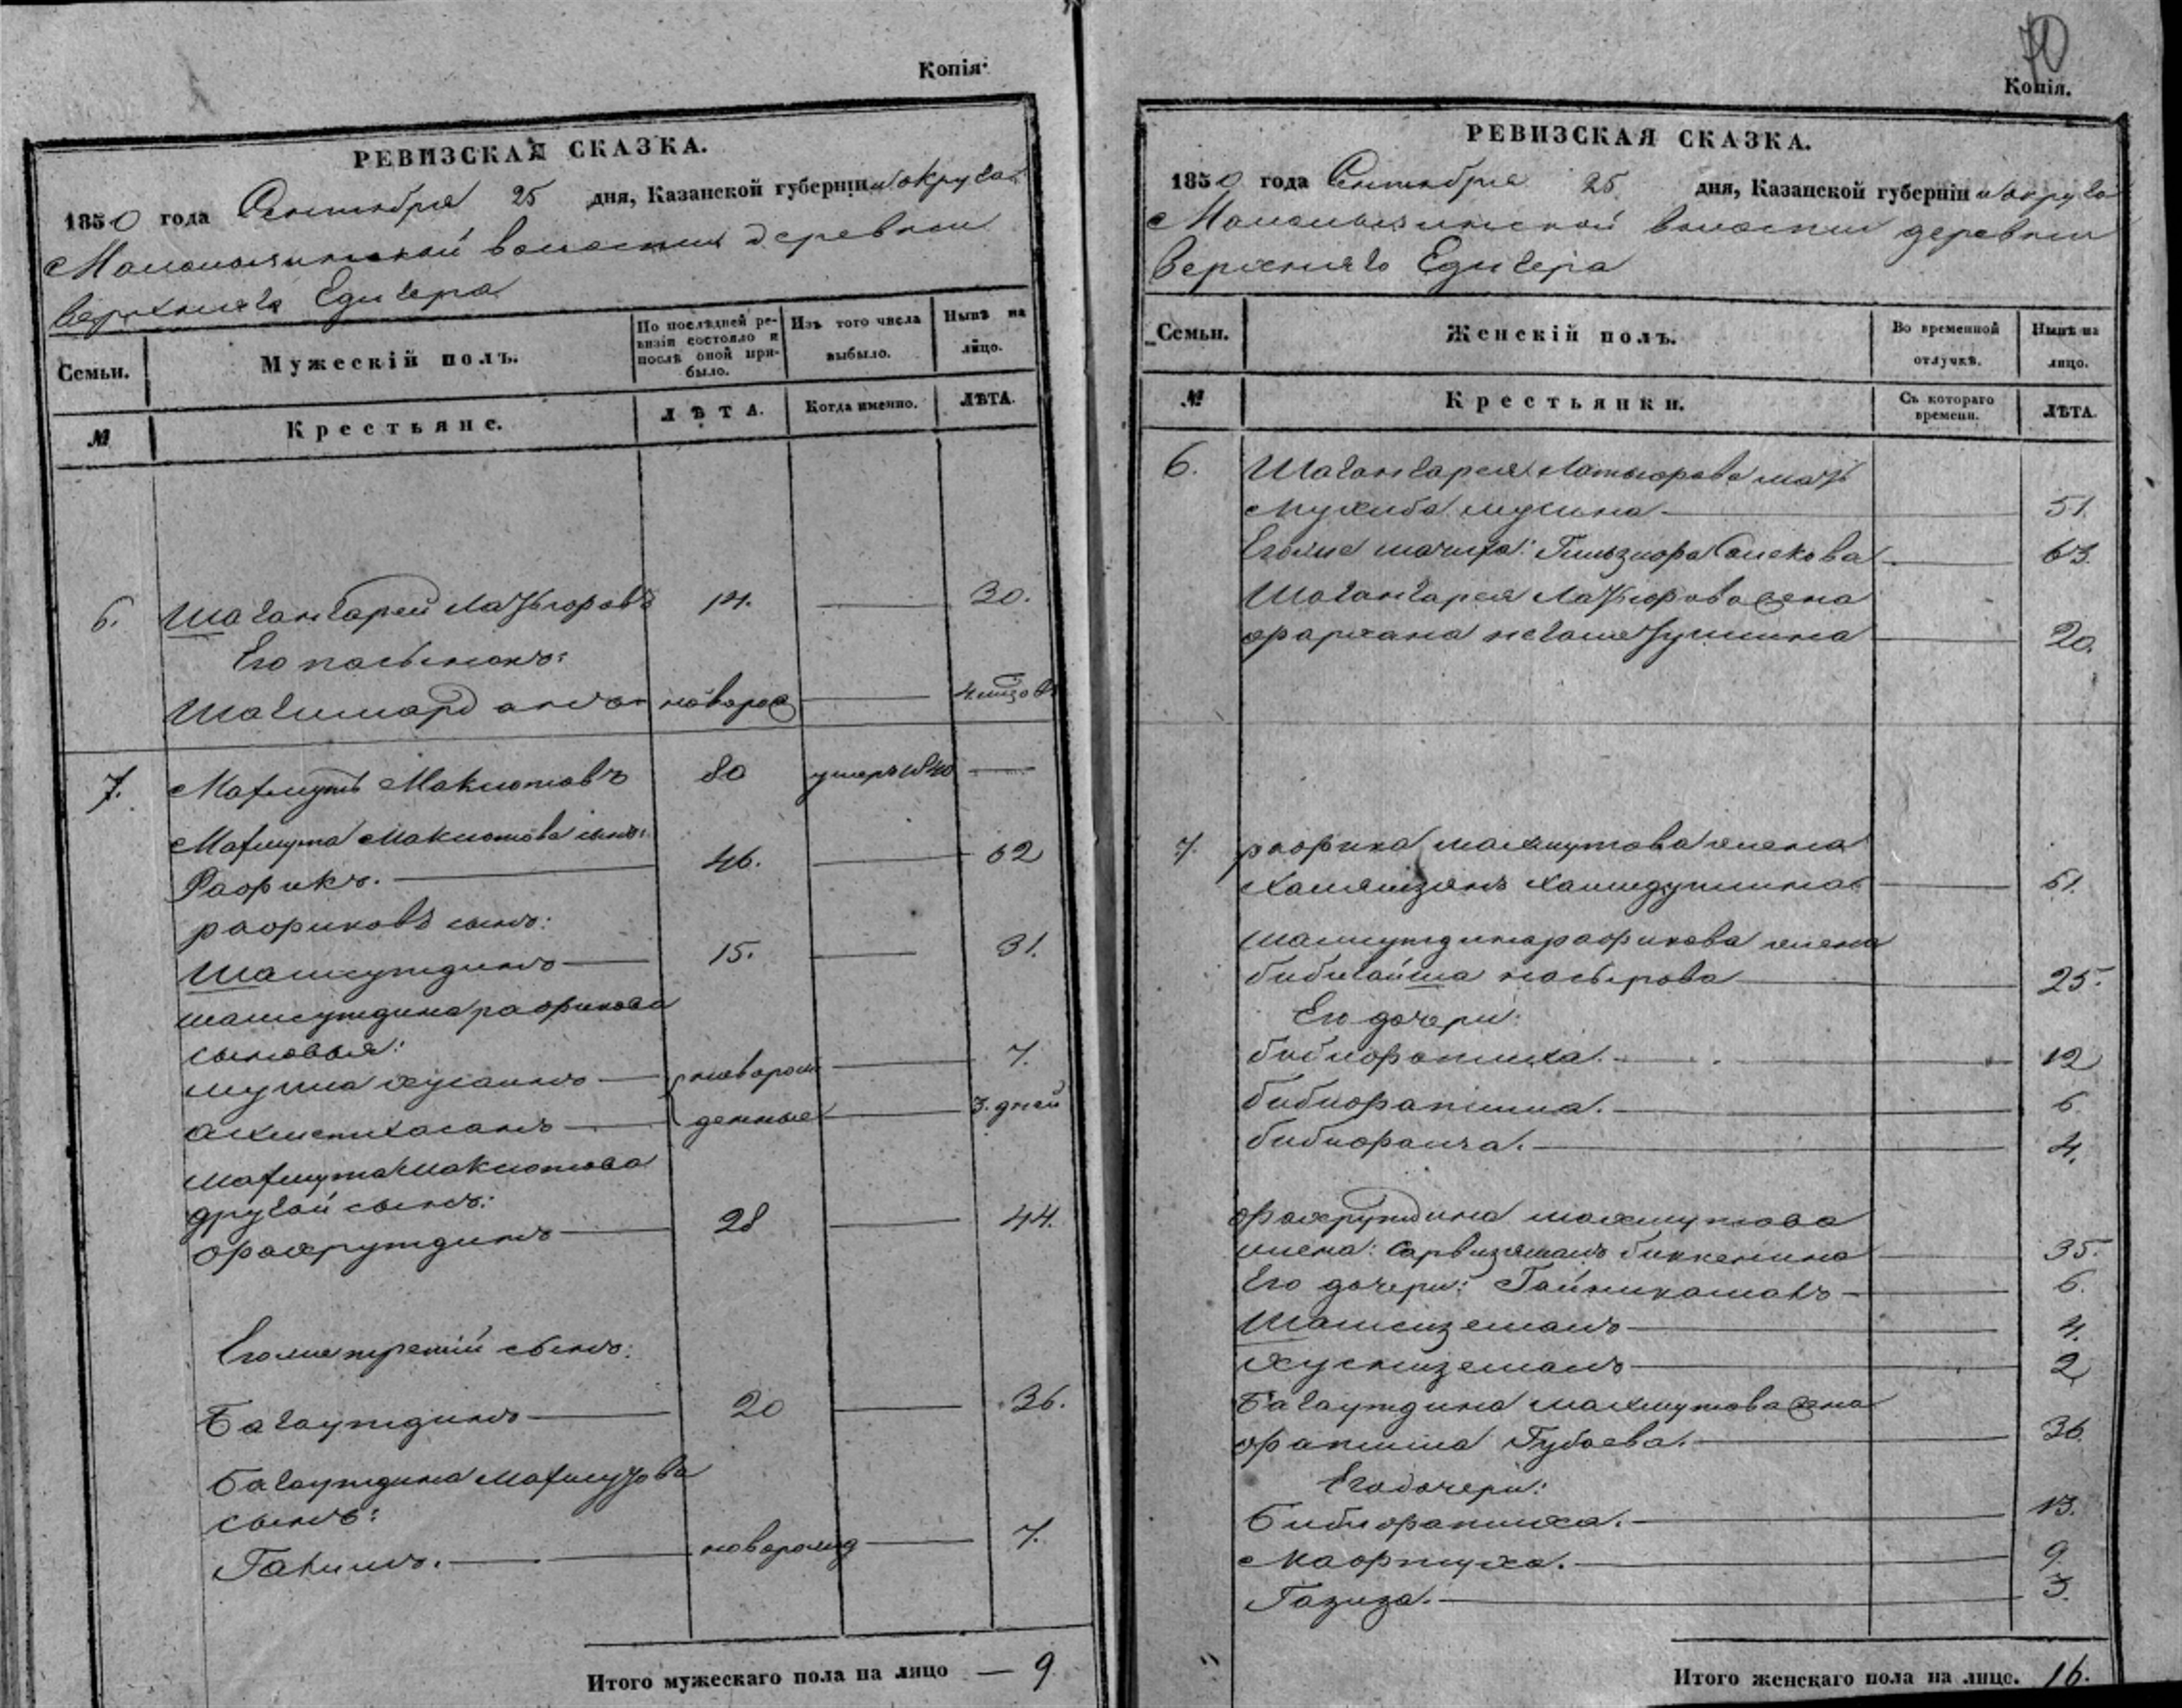 Копія.
РЕВИЗСКАЯ СКАЗКА.
1850 года Сентября 25 дня, Казанской губерніи и округа
волости деревни
Верхняго Едигера
Семьи.
Мужескій полъ.
По послѣдней ревизіи состояло и послѣ оной прибыло.
Изъ того числа выбыло.
Нынѣ на лицо.
№
Крестьяне.
ЛѢТА.
Когда именно.
ЛѢТА.
6. Шагангарей Латыфовъ 14. 30.
Его пасынокъ:
Шагимарданъ 4
7. Махмутъ Макшотовъ 80 умеръ 1840
Махмута Макшотова сынъ:
Рафикъ. 46. 62
рафиковъ сынъ:
Шамсутдинъ 15. 31.
шамсутдина рафикова
сыновья:
мулла хусаинъ новорож 7.
ахметхасанъ денные 3. дней
махмута Макшотова
другой сынъ:
фахрутдинъ 28 44.
Его же третій сынъ:
Багаутдинъ 20 36.
Багаутдина Махмутова
сынъ:
новорожд 7.
Итого мужескаго пола на лицо — 9.
70
Копія.
РЕВИЗСКАЯ СКАЗКА.
1850 года Сентября 25 дня, Казанской губерніи и округа
волости деревни
Верхняго Едигера
Семьи.
Женскій полъ.
Во временной отлучкѣ.
Нынѣ на лицо.
№
Крестьянки.
Съ котораго времени.
ЛѢТА.
6. Шагангарея Латыфова мать
51.
Его же мачиха: 63.
Шагангарея Латыфова жена
20.
7. рафика махмутова жена
61.
шамсутдина рафикова жена
бибигайша насырова 25.
Его дочери:
бибифатиха. 12
бибифатима. 6
4.
фахрутдина махмутова
жена: Сарвизяманъ биккенина 35.
Его дочери: 6.
Шамсиземанъ 4.
хусниземанъ 2
Багаутдина махмутова жена
фатима Губаева. 36.
Его дочери:
Бибифатиха. 13.
Мафтуха. 9.
Газиза. 3.
Итого женскаго пола на лице. 16.